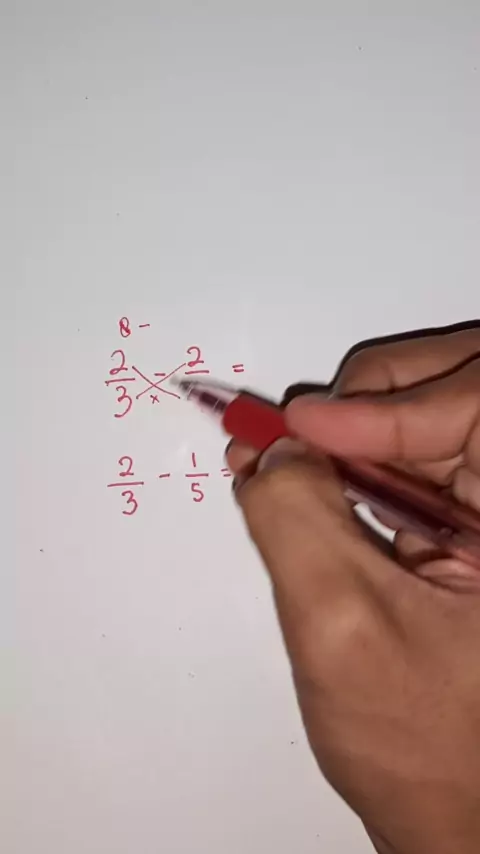 8 -
2/3 - 2/ =
×
2/3 - 1/5 =